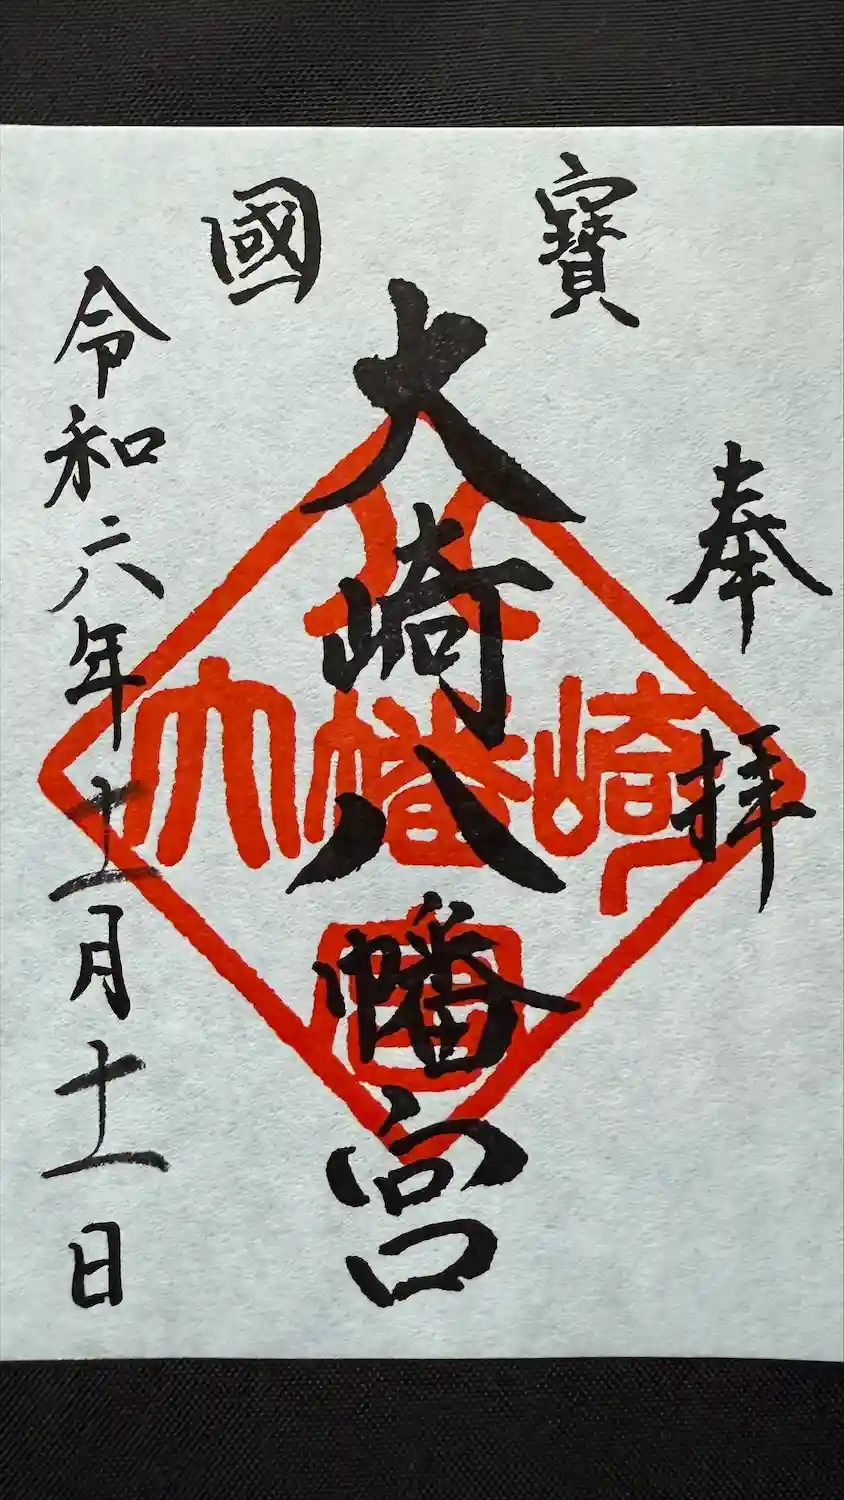 奉拝
寶國
大崎八幡宮
令和六年十二月十一日
八
大幡崎